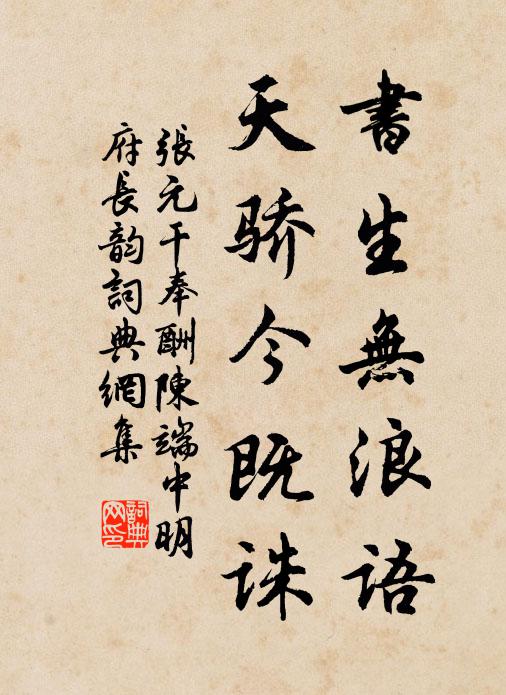 書生無浪语
天骄今既诛
張元干奉酬陳端中明
府長韵詞典網集
詞典网印